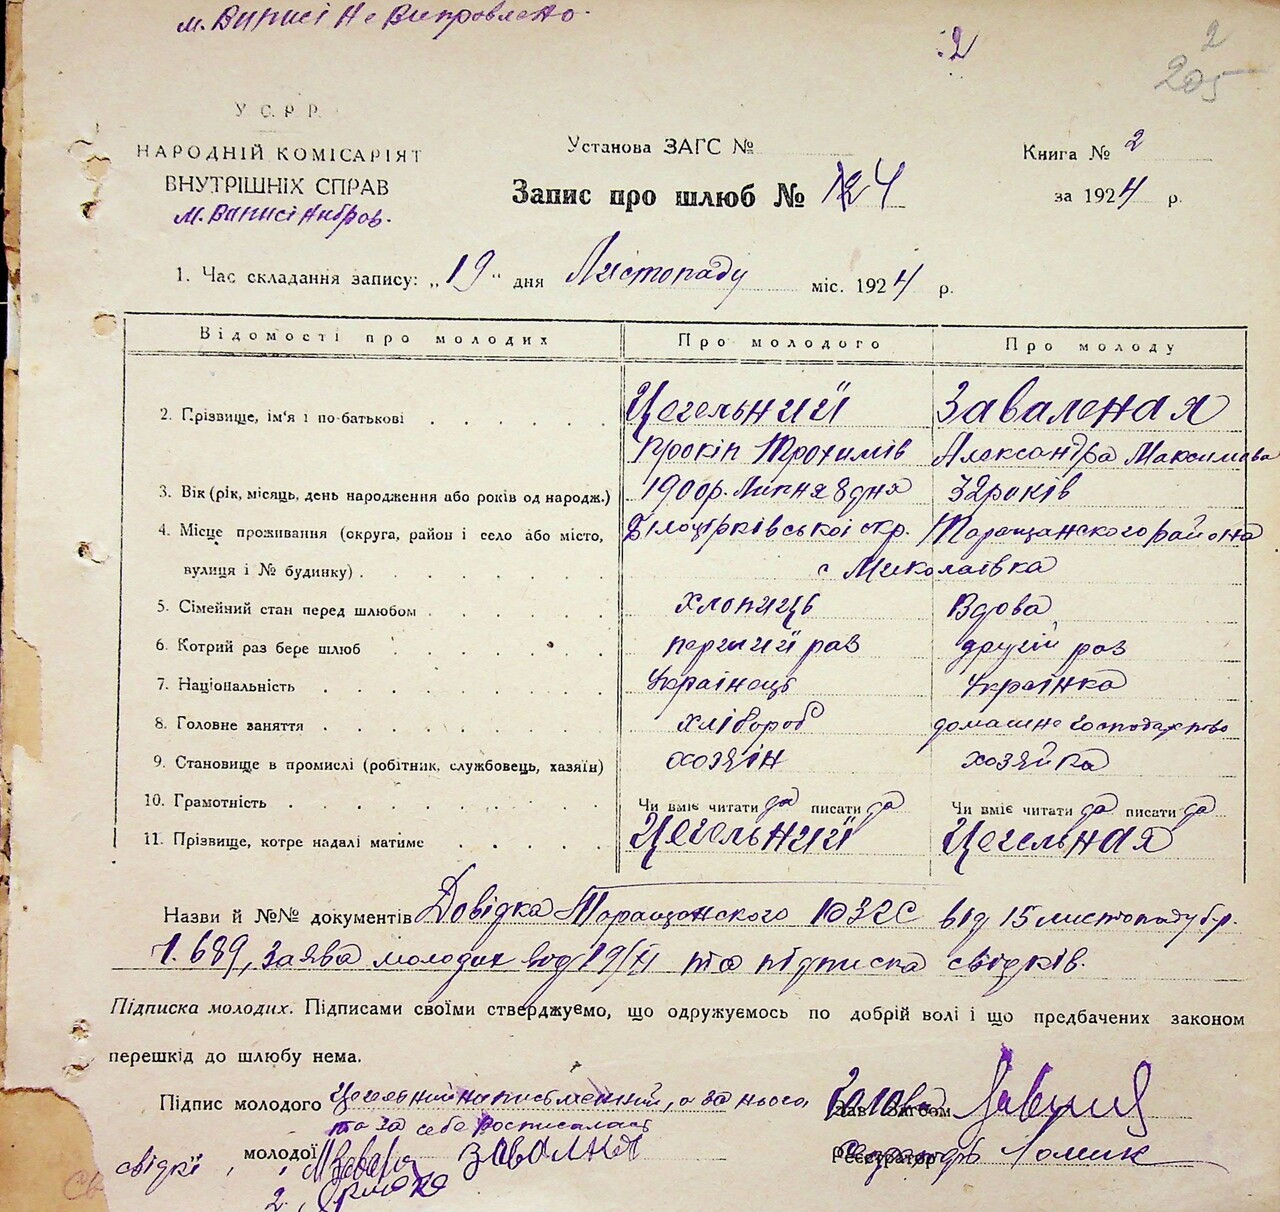 м. Виписі Не Виправлено.
2
2
205
У С. Р Р.
НАРОДНІЙ КОМІСАРІЯТ
ВНУТРІШНІХ СПРАВ
Установа ЗАГС №
Книга № 2
Запис про шлюб № 124
за 1924 р.
1. Час складання запису: „19" дня Листопаду міс. 1924 р.
Відомості про молодих Про молодого Про молоду
2. Прізвище, ім'я і по-батькові Цегельний Заваленая
Прокіп Трохимів Александра Максимова
3. Вік (рік, місяць, день народження або років од народж.) 1900р. Липня 8 дня 32 років
4. Місце проживання (округа, район і село або місто, Білоцірківської окр. Таращанского района
вулиця і № будинку) с Миколаівка
5. Сімейний стан перед шлюбом хлопиць Вдова
6. Котрий раз бере шлюб перший раз другий раз
7. Національність Українець Українка
8. Головне заняття хлібороб домашнє господарство
9. Становище в промислі (робітник, службовець, хазяїн) хозяін хозяйка
10. Грамотність Чи вміє читати да писати да Чи вміє читати да писати да
11. Прізвище, котре надалі матиме Цегельний Цегельная
Назви й №№ документів Довідка Таращанского від 15 листопаду б.р.
689, заява молодих від 19/XI та підписка свідків.
Підписка молодих. Підписами своїми стверджуємо, що одружуємось по добрій волі і що предбачених законом
перешкід до шлюбу нема.
Підпис молодого Цегельний неписьменний, а за нього Голова
та за себе росписалась
молодої Завална Реєстратор
свідкі 1.
2.